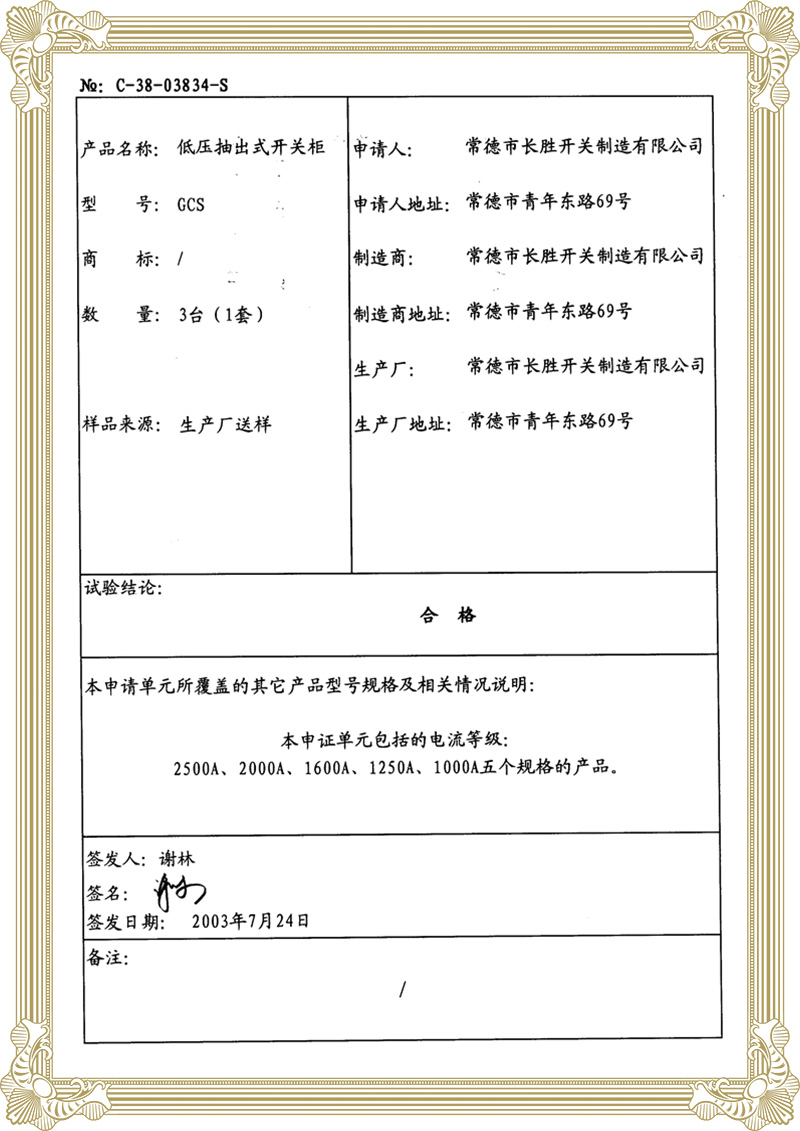 №: C-38-03834-S
产品名称: 低压抽出式开关柜
型 号: GCS
商 标: /
数 量: 3台(1套)
样品来源: 生产厂送样
申请人: 常德市长胜开关制造有限公司
申请人地址: 常德市青年东路69号
制造商: 常德市长胜开关制造有限公司
制造商地址: 常德市青年东路69号
生产厂: 常德市长胜开关制造有限公司
生产厂地址: 常德市青年东路69号
试验结论:
合 格
本申请单元所覆盖的其它产品型号规格及相关情况说明:
本申证单元包括的电流等级:
2500A、2000A、1600A、1250A、1000A五个规格的产品。
签发人: 谢林
签名:
签发日期: 2003年7月24日
备注:
/